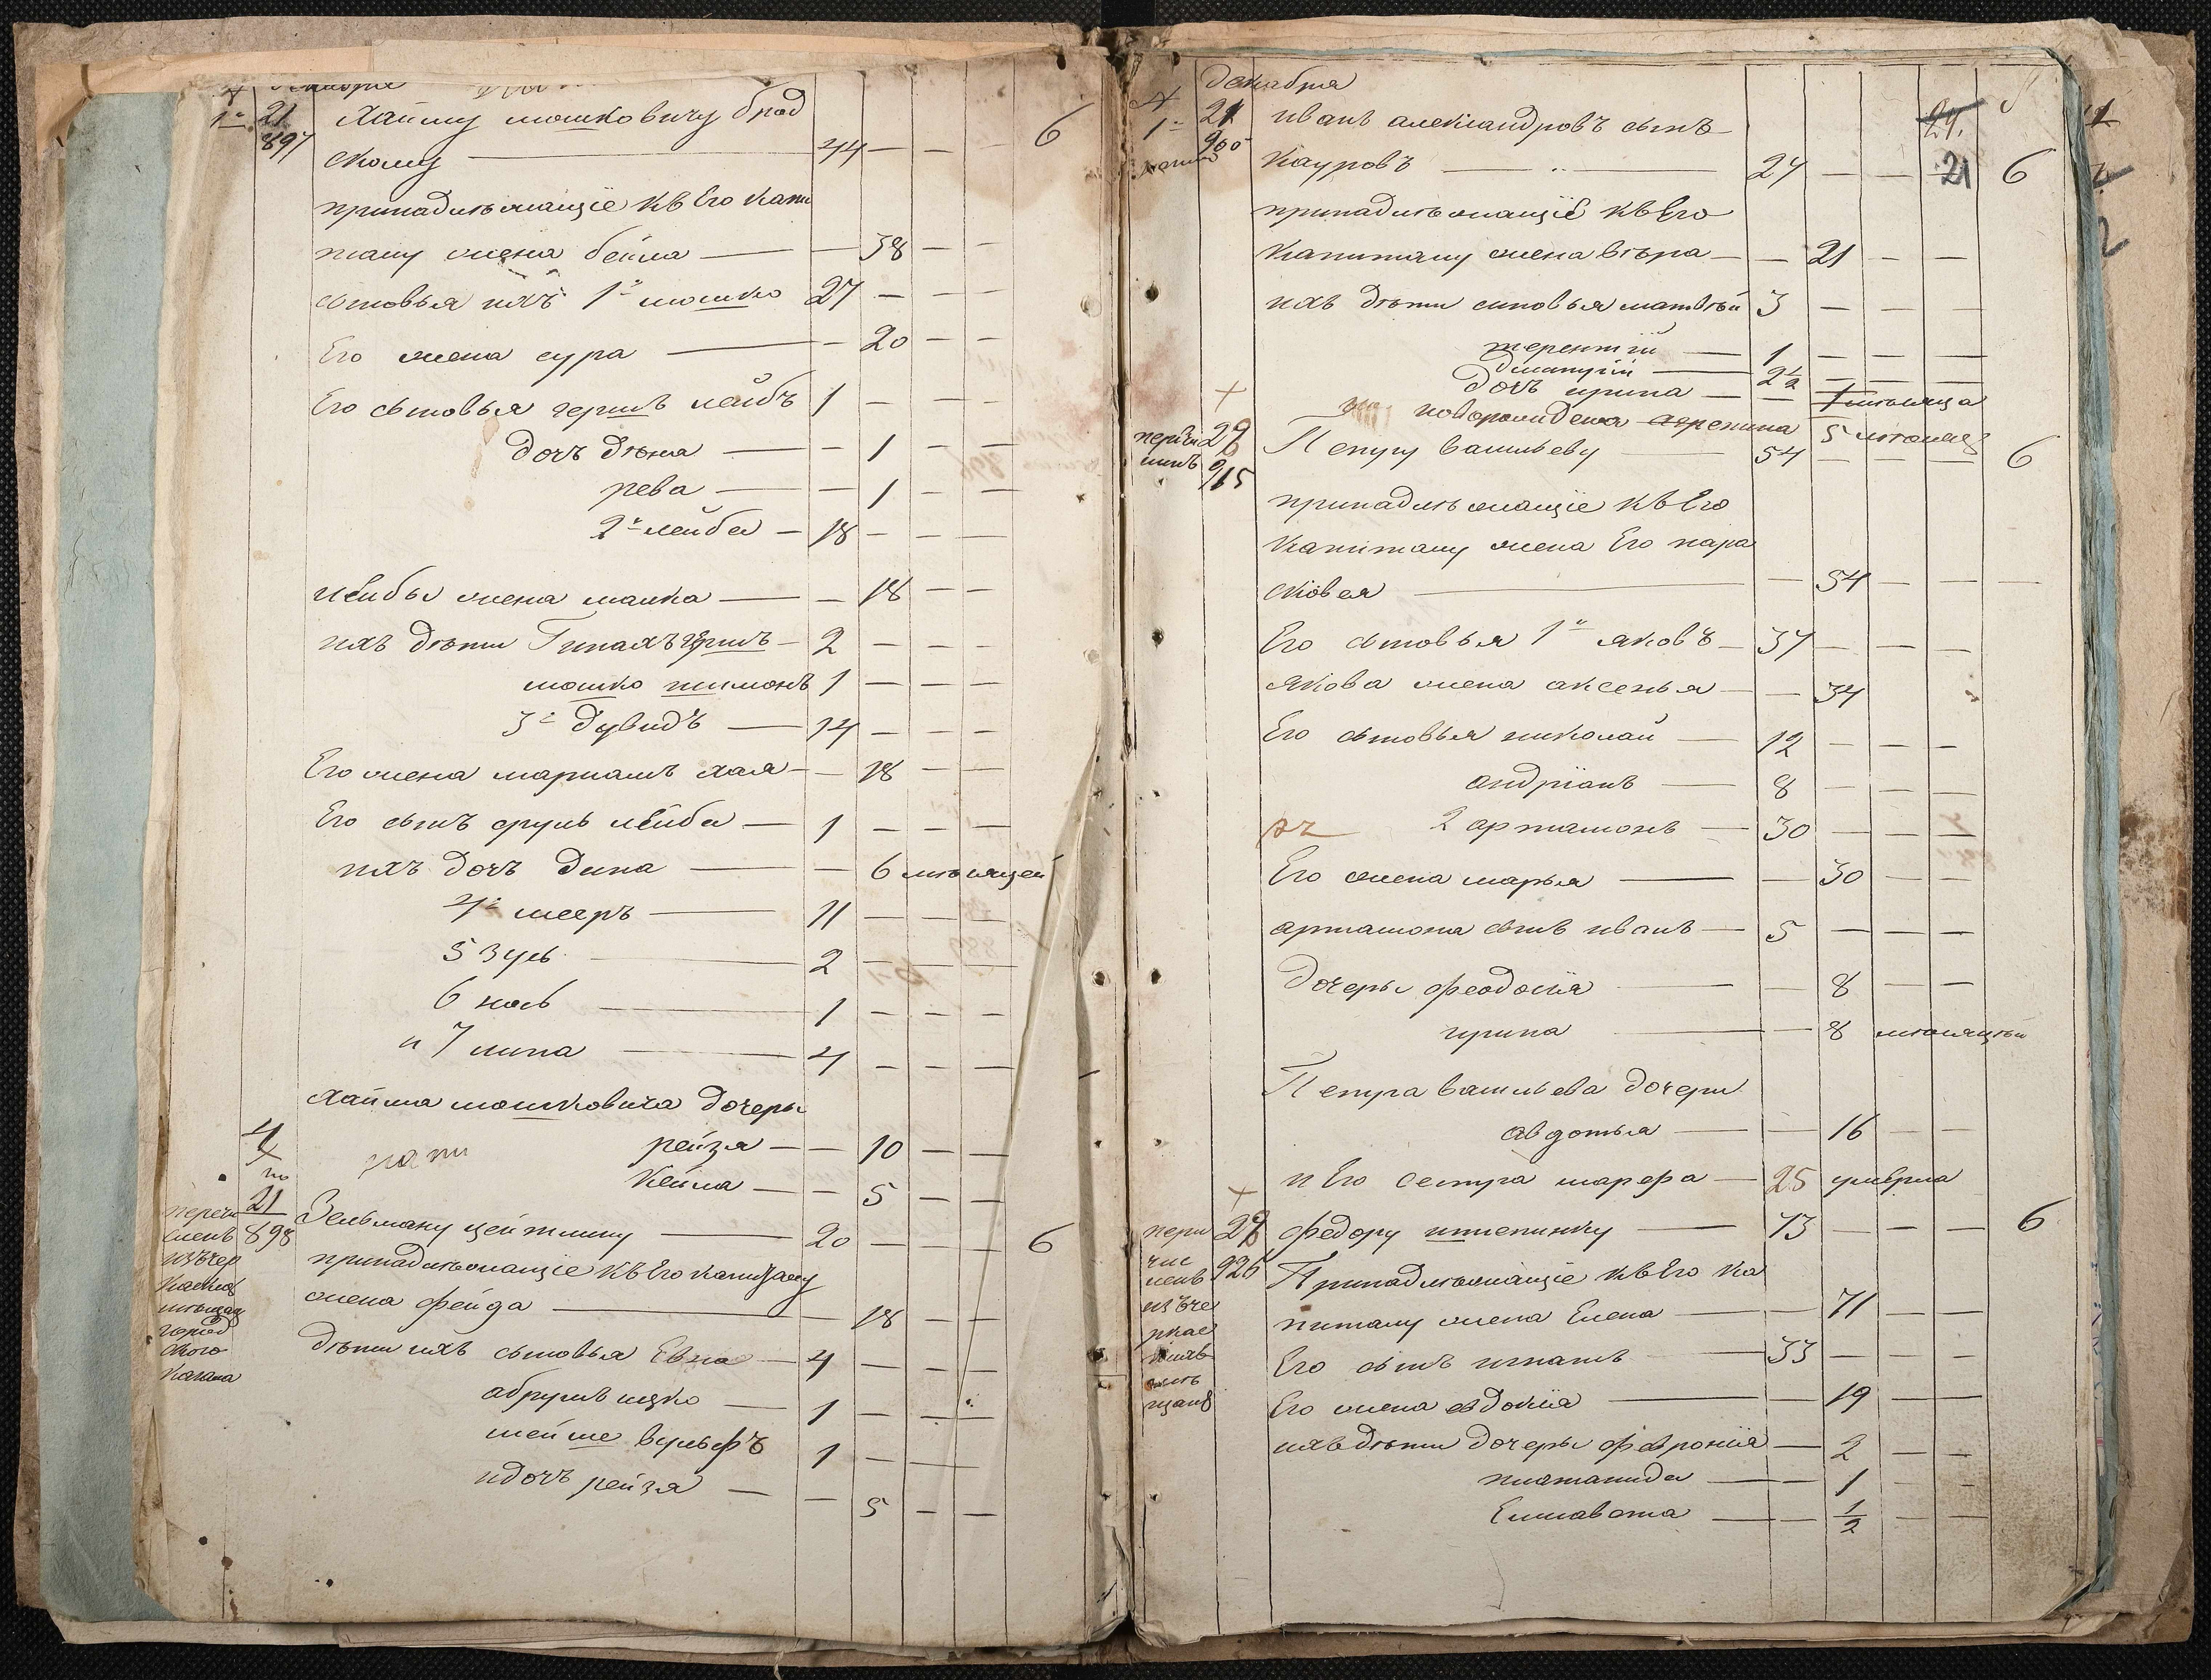 21 Хайму мошковичу брод
897 скому — 44 — — — 6
принадлѣжащiе къ Его капи
талу жена бейла — — 38 — —
сыновья ихъ 1й мошко 27 — — —
Его жена сура — — 20 — —
Его сыновья гершъ лейбъ 1 — — —
дочь — — 1 — —
рева — — 1 — —
2й лейба — 18 — — —
лейбы жена малка — — 18 — —
ихъ дѣти гершъ — 2 — — —
мошко шимонъ 1 — — —
3й дувидъ — 14 — — —
Его жена марiамъ хая — — 18 — —
Его сынъ сруль лейба — 1 — — —
ихъ дочь дина — — 6 мѣсяцей
4й мееръ — 11 — — —
5 зусь — 2 — — —
6 — 1 — — —
и 7 липа — 4 — — —
Хайма мошковича дочеры
рейзя — — 10 — —
Кейла — — 5 — —
21
898 Зельману цейтлину — 20 — — — 6
перечи
сленъ
принадлѣжащiе къ Его капиталу
жена фейга — — 18 — —
дѣти ихъ сыновья — 4 — — —
абрумъ ицко — 1 — — —
вульфъ 1 — — —
и дочь рейзя — — 5 — —
город
ского
кагала
декабря
21 иванъ александровъ сынъ 24.
1й 900 кауровъ — 24 — — 21 6
принадлѣжащiе къ Его
капиталу жена вѣра — — 21 — —
ихъ дѣти сыновья матвѣй 3 — — —
терентiй — 1 — — —
— 2½ — — —
дочь ирина — — 1 мѣсяца
новорожденна 5 мѣсяц
27
915 Петру васильеву — 54 — — — 6
принадлѣжащiе къ Его
капиталу жена Его пара
сковея — — 54 — —
Его сыновья 1й яковъ — 37 — — —
якова жена аксенья — — 34 — —
Его сыновья николай — 12 — — —
андрiанъ — 8 — — —
2 артамонъ — 30 — — —
Его жена марья — — 30 — —
артамона сынъ иванъ — 5 — — —
дочеры феодосiя — — 8 — —
ирина — — 8 мѣсяцѣй
Петра васильева дочери
авдотья — — 16 — —
и Его сестра марфа — 25 умерла
926 федору — 73 — — — 6
Принадлѣжащiе къ Его ка
питалу жена Елена — — 71 — —
Его сынъ игнатъ — 33 — — —
Его жена евдокiя — — 19 — —
ихъ дѣти дочеры феврониiя — 2 — —
— — 1 — —
Елисавета — — ½ — —